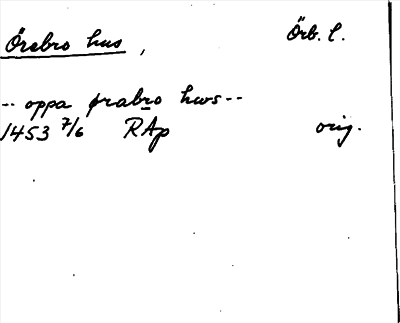 Örebro hus, Örb. l.
-- oppa ørabro hws --
1453 7/6 RAp orig.